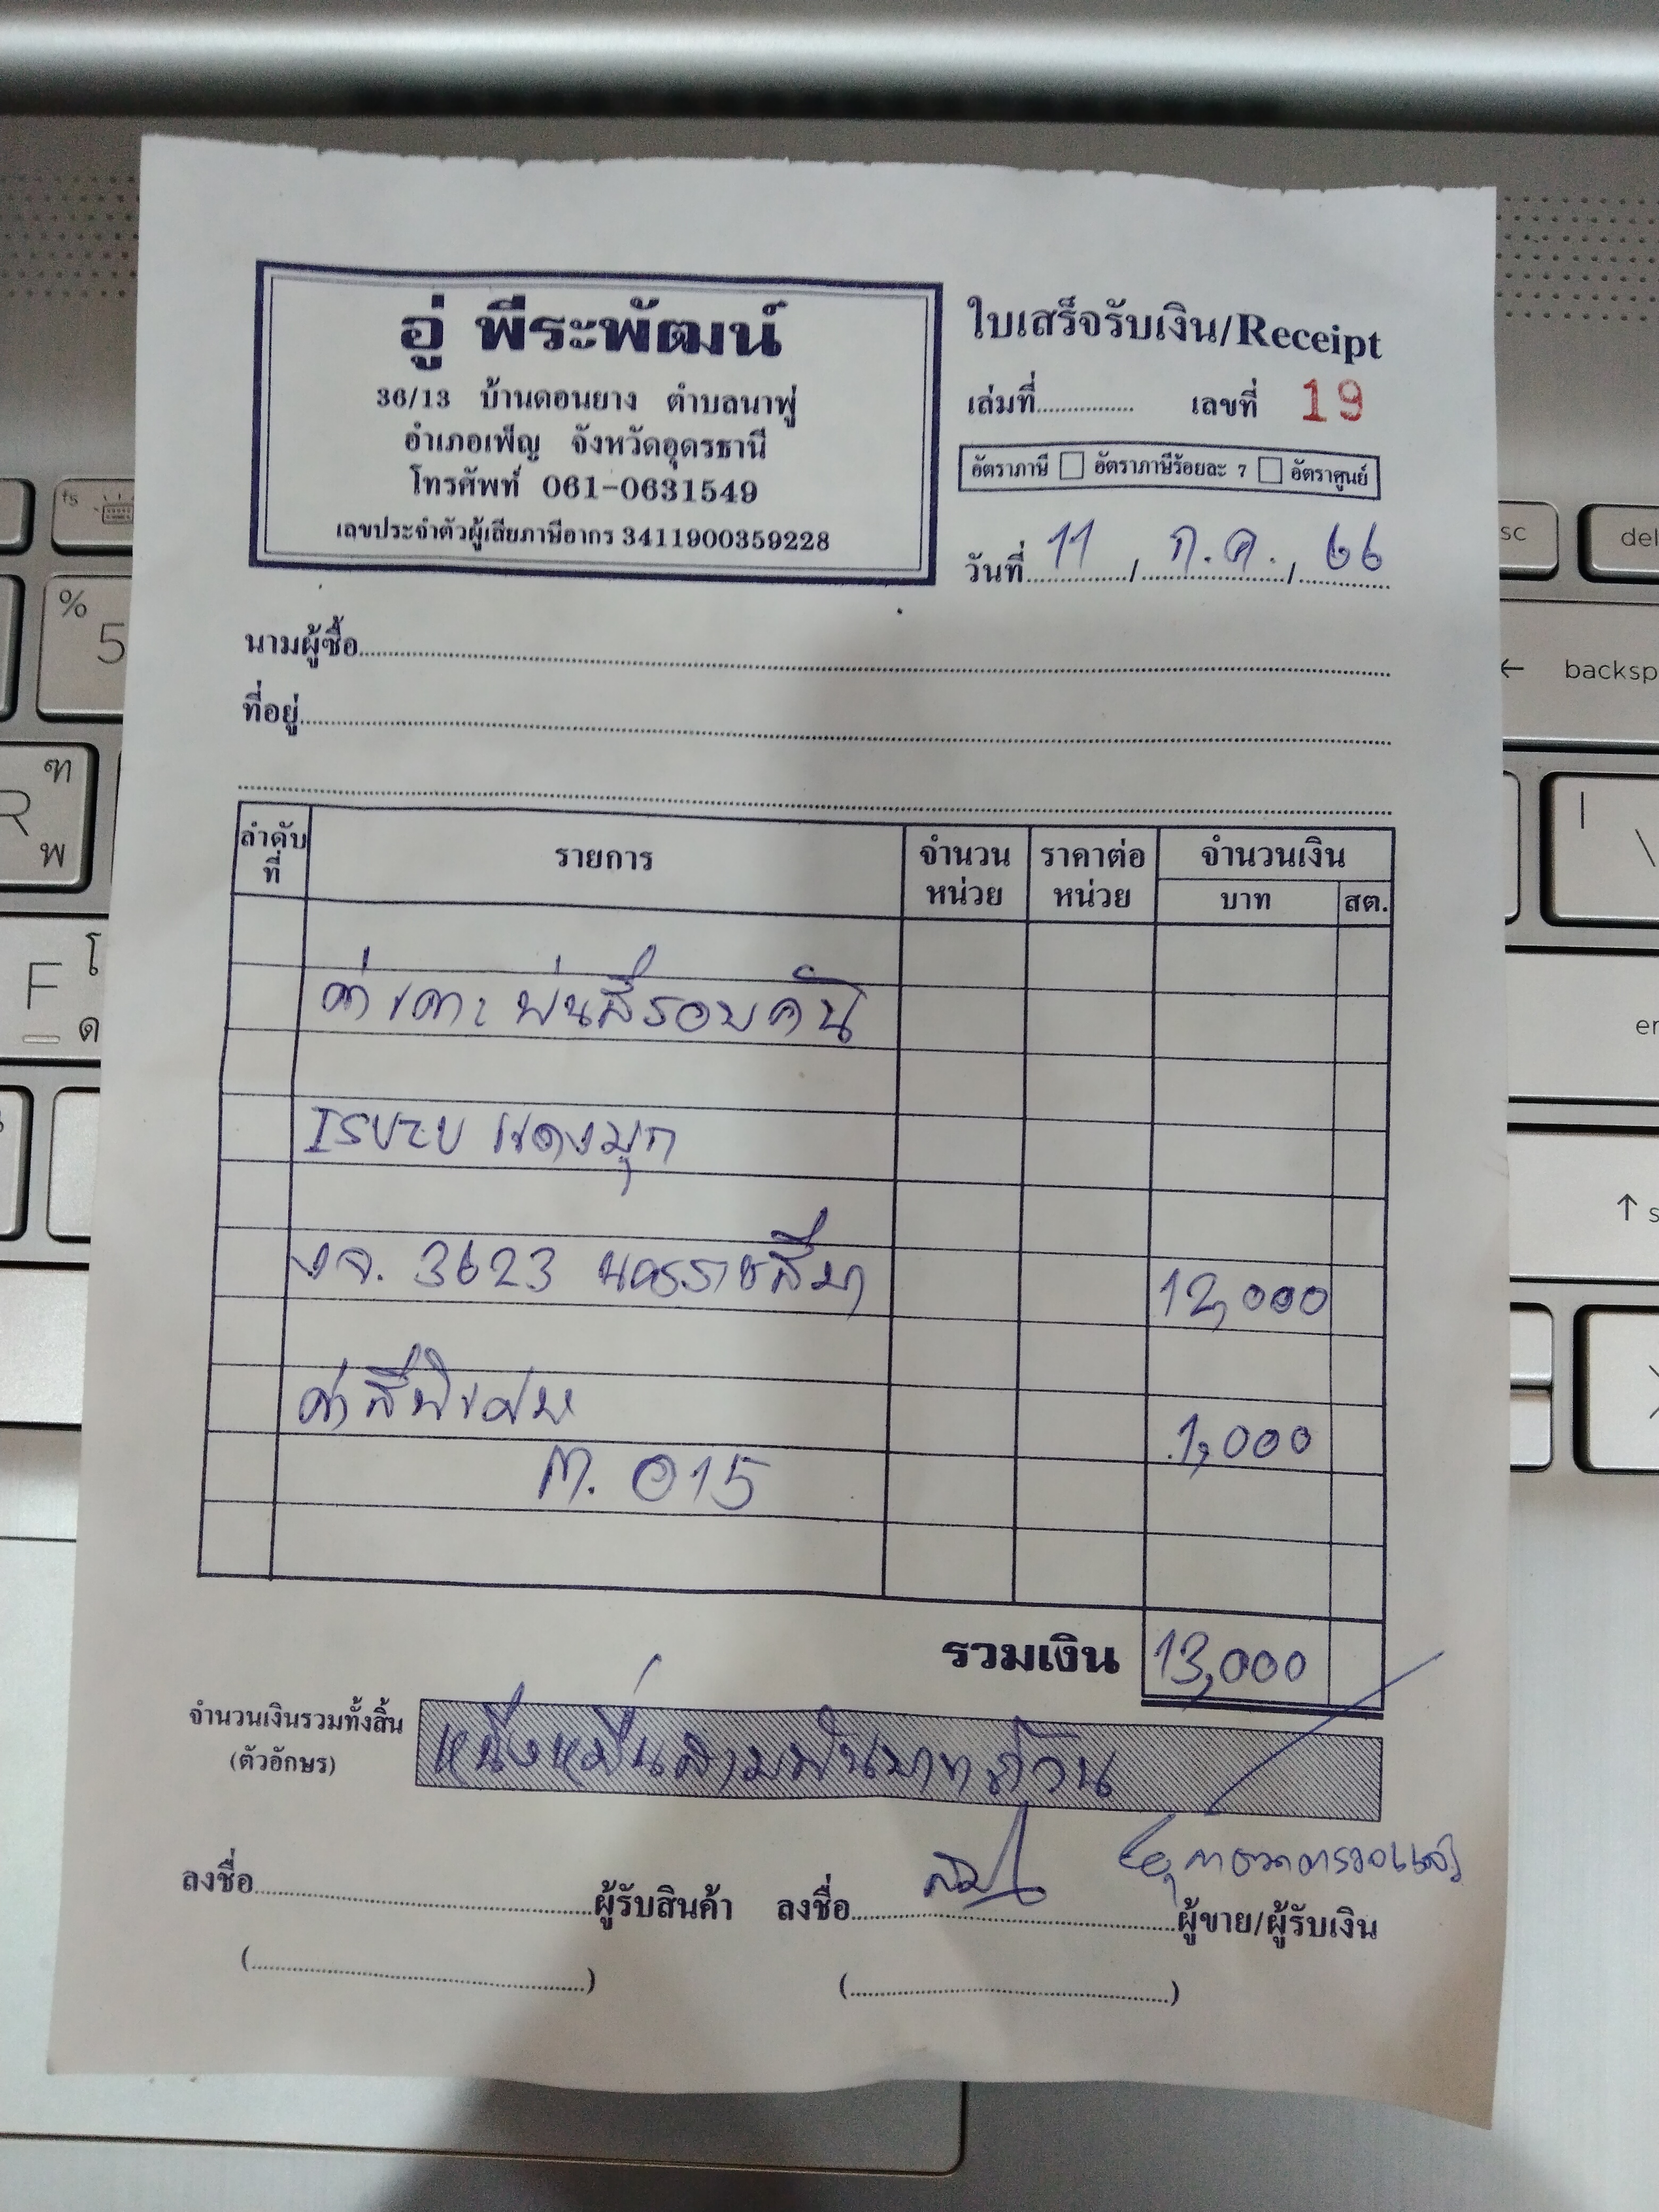 อู่ พีระพัฒน์
36/13 บ้านดอนยาง ตำบลนาพู่
อำเภอเพ็ญ จังหวัดอุดรธานี
โทรศัพท์ 061-0631549
เลขประจำตัวผู้เสียภาษีอากร 3411900359228
ใบเสร็จรับเงิน/Receipt
เล่มที่................ เลขที่ 19
อัตราภาษี อัตราภาษีร้อยละ 7 อัตราศูนย์
วันที่ 11 / ก.ค. / 66
นามผู้ซื้อ
ที่อยู่
ลำดับที่ รายการ จำนวนหน่วย ราคาต่อหน่วย จำนวนเงิน
บาท สต.
ค่าเคาะ พ่นสีรอบคัน
ISUZU แดงมุก
3623 นครราชสีมา 12,000
ค่าสีพิเศษ 1,000
015
รวมเงิน 13,000
จำนวนเงินรวมทั้งสิ้น (ตัวอักษร) หนึ่งหมื่นสามพันบาทถ้วน
ลงชื่อ ผู้รับสินค้า ลงชื่อ ผู้ขาย/ผู้รับเงิน
(..........) (..........)
fs
% 5
R ฑ พ
F โ ด
sc
del
backsp
| \
er
↑ s